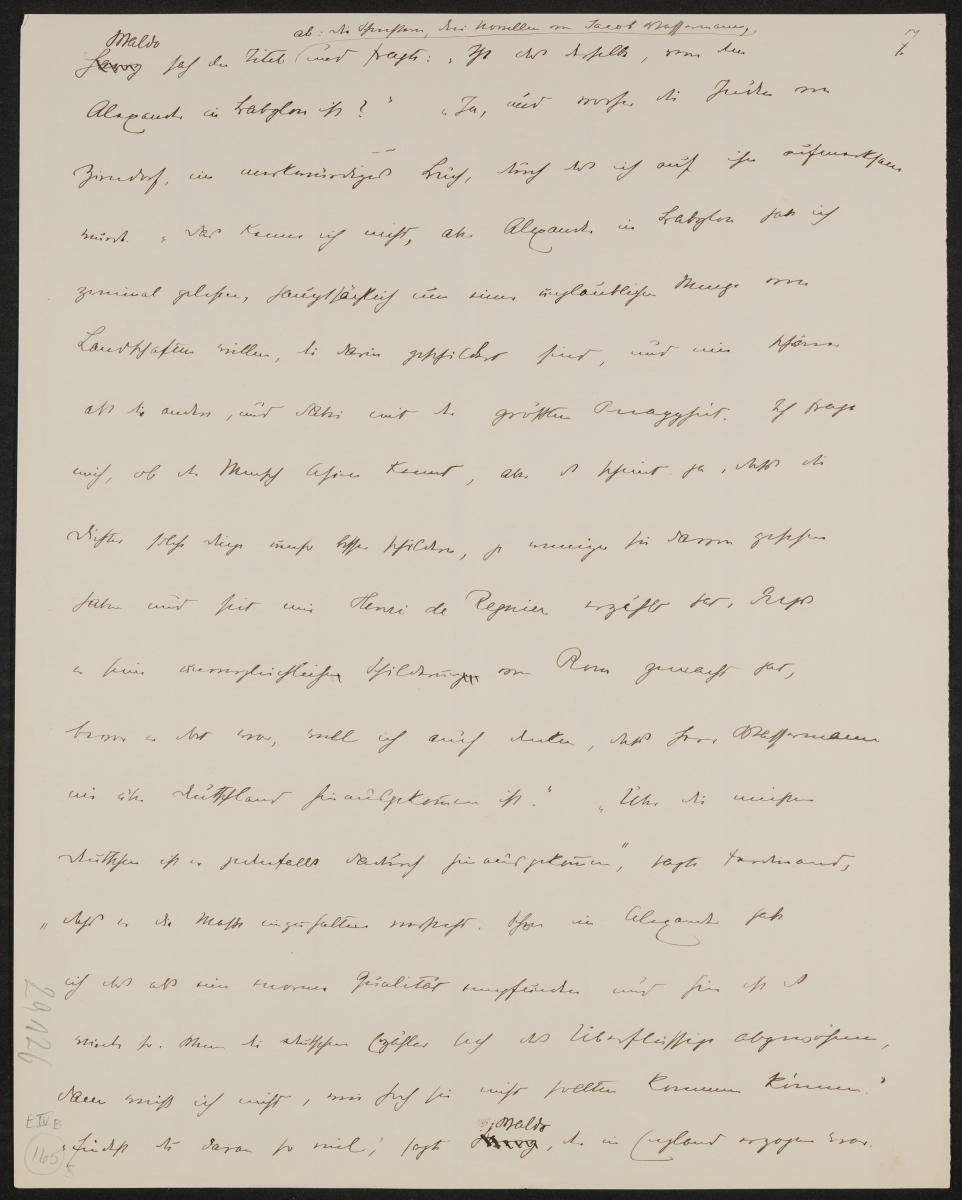 ab: die Schwestern, drei Novellen von Jacob Wassermann,
7
Waldo
Georg sah den Titel und fragte: „Ist das derselbe, von dem
Alexander in Babylon ist?" „Ja, und vorher die Juden von
Zirndorf, ein merkwürdiges Buch, durch das ich auf ihn aufmerksam
wurde. „Das kenne ich nicht, aber Alexander in Babylon hab ich
zweimal gelesen, hauptsächlich um einer unglaublichen Menge von
Landschaften willen, die darin geschildert sind, und eine schöner
als die andere, und dabei mit der größten Knappheit. Ich frage
mich, ob der Mensch Asien kennt, aber es scheint ja, dass die
Dichter solche Dinge umso besser schildern, je weniger sie davon gesehen
haben und seit mir Henri de Regnier erzählt hat, dass
er seine unvergleichlichen Schilderungen von Rom gemacht hat,
bevor er dort war, will ich auch denken, dass Herr Wassermann
nie über Deutschland hinausgekommen ist." „Über die meisten
Deutschen ist er jedenfalls dadurch hinausgekommen", sagte Ferdinand,
„dass er die Masse einzuhalten versteht. Schon im Alexander hab
ich das als eine enorme Qualität empfunden und hier ist es
wieder so. Wenn die deutschen Erzähler sich das Überflüssige abgewöhnen,
dann weiß ich nicht, wie hoch sie nicht sollten kommen können."
Waldo
„Findest du daran so viel", sagte Georg, der in England erzogen war.
29126
E IV B
165